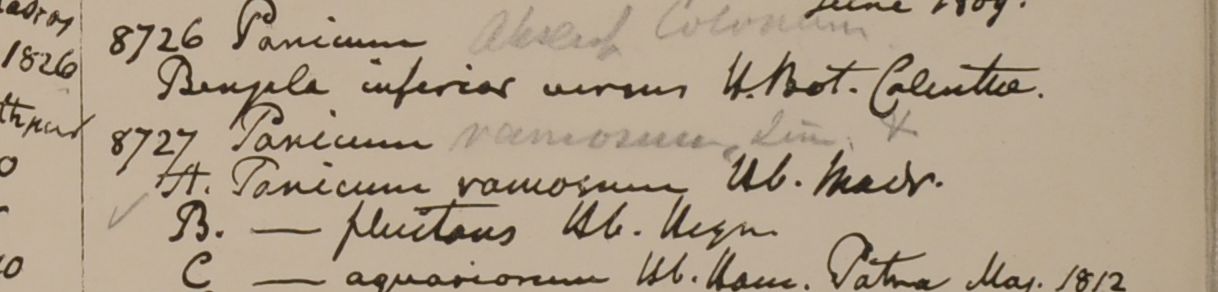 June 1809.
8726 Panicum Absent Colonum
Bengala inferior versus H. Bot. Calcuttæ.
8727 Panicum ramosum, Lin. +
A. Panicum ramosum Hb. Madr.
B. — fluitans Hb. Heyn
C — aquariorum Hb. Ham. Patna Maj. 1812
1826